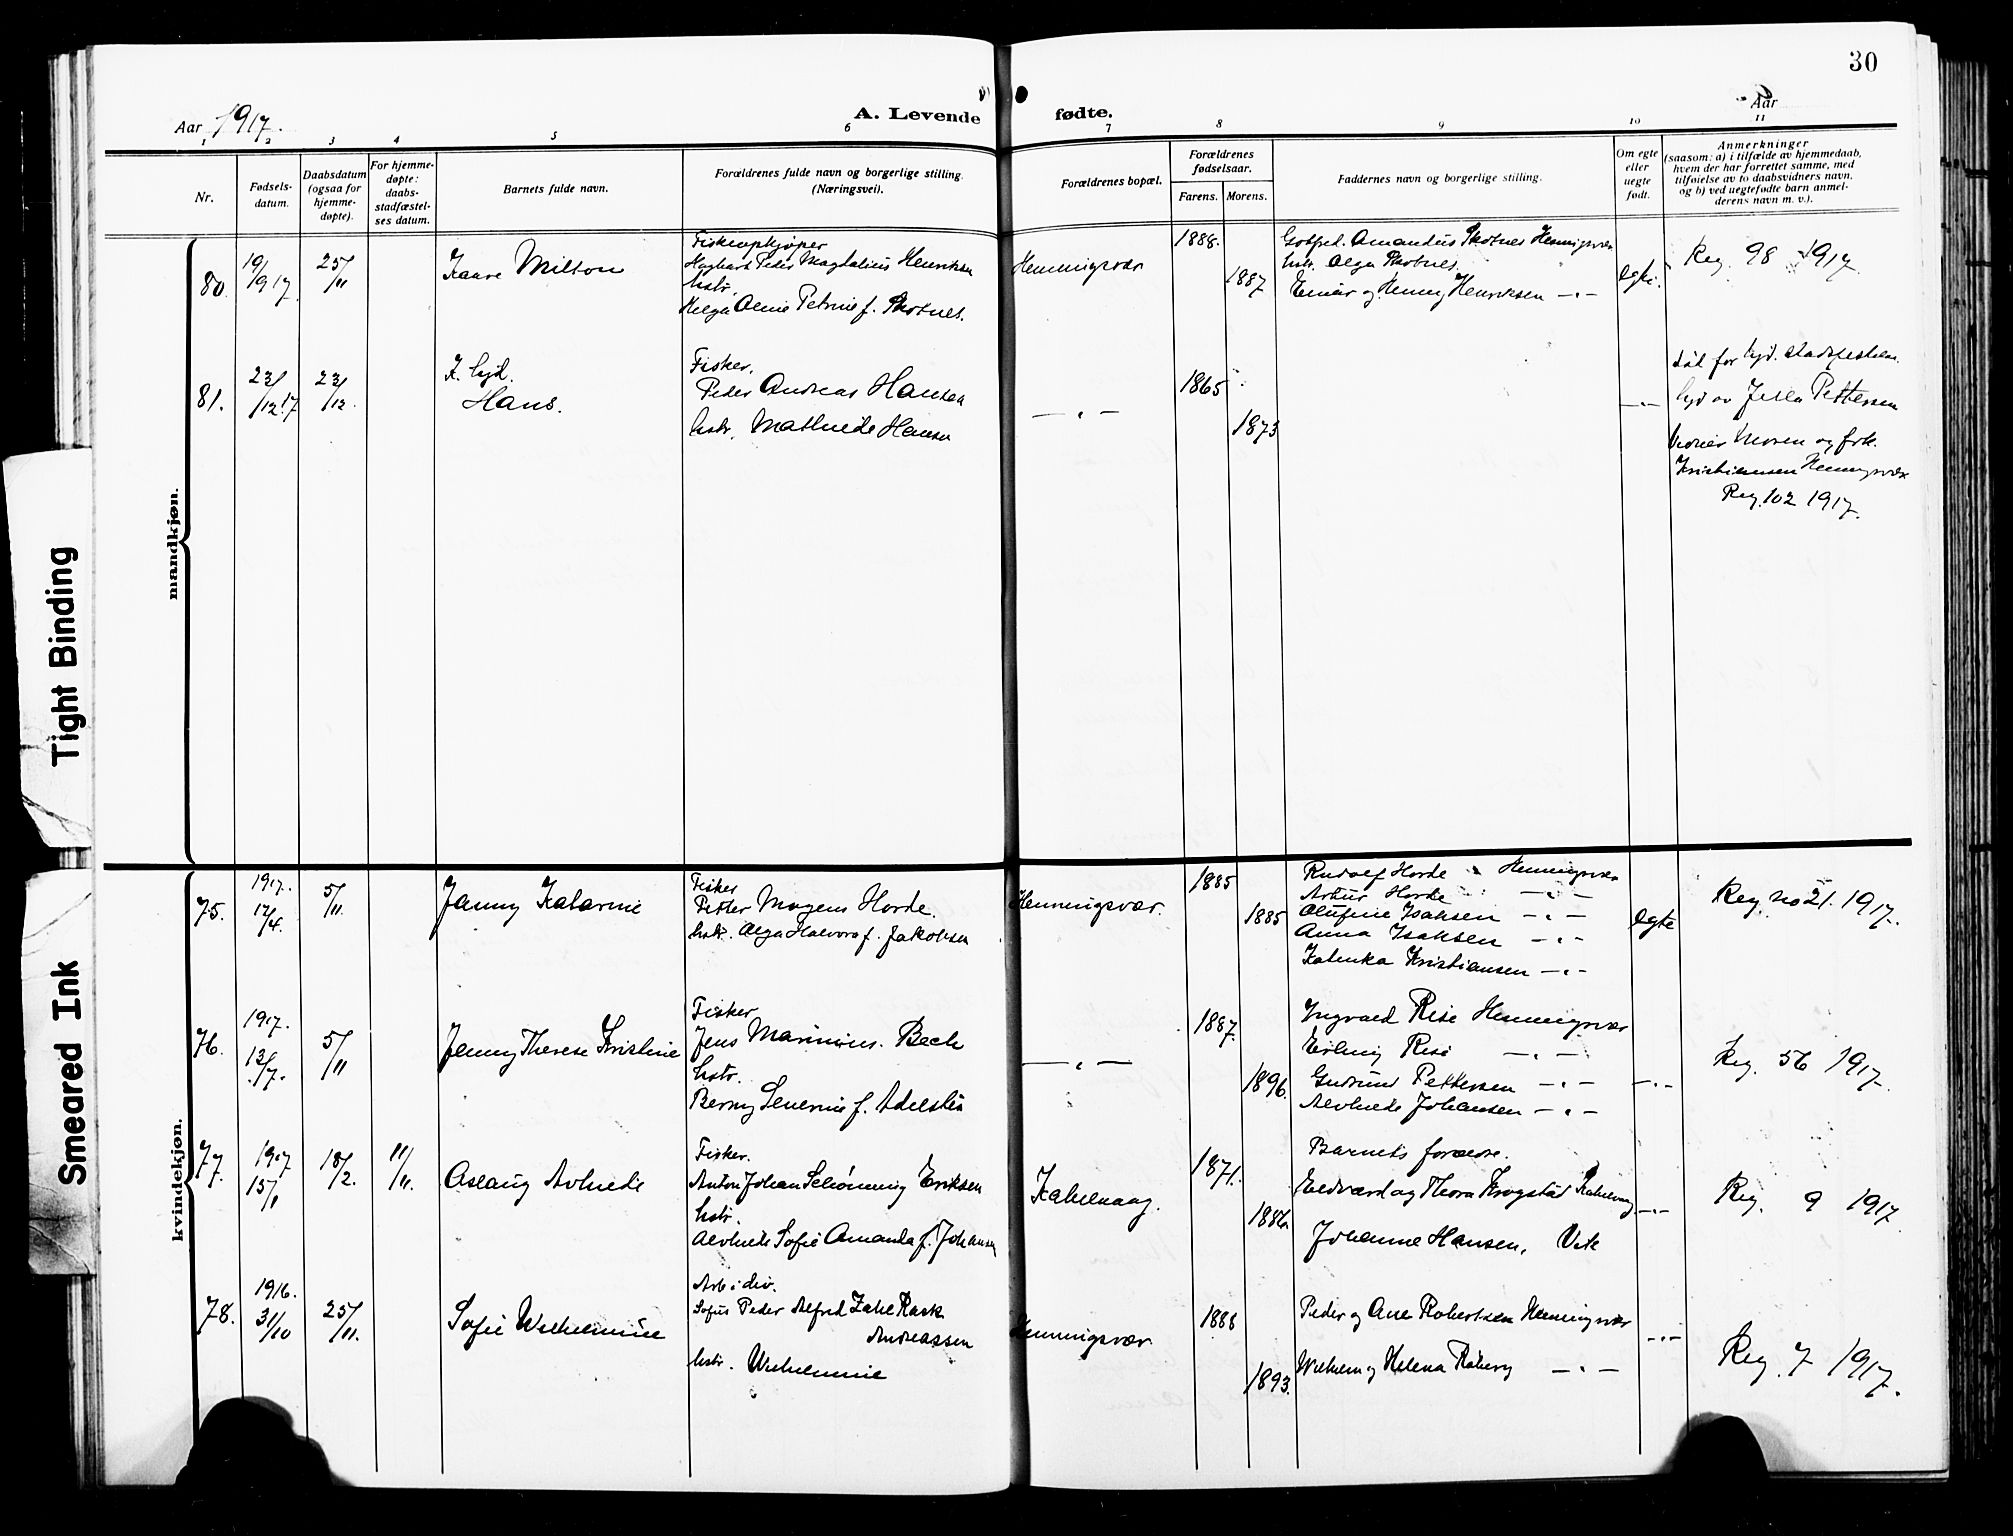 30
Aar 1917.
A. Levende
fødte.
Aar
1 2 3 4 5 6 7 8 9 10 11
Nr.
Fødsels-
datum.
Daabsdatum
(ogsaa for
hjemme-
døpte).
For hjemme-
døpte:
daabs-
stadfæstel-
ses datum.
Barnets fulde navn.
Forældrenes fulde navn og borgerlige stilling.
(Næringsvei).
Forældrenes bopæl.
Forældrenes
fødselsaar.
Farens. Morens.
Faddernes navn og borgerlige stilling.
Om egte
eller
uegte
født.
Anmerkninger
(saasom: a) i tilfælde av hjemmedaab,
hvem der har forrettet samme, med
tilføielse av to daabsvidners navn,
og b) ved uegtefødte barn anmel-
derens navn m. v.).
mandkjøn.
80.
19/9 17
25/11
Kaare Milton
Fiskeopkjøper
Hagbart Peder Magdalius Henriksen
hstr.
Helga Anne Petrine f. Skotnes.
Henningsvær
1888.
1887
Gotfred Amandus Skotnes Henningsvær
hstr. Olga Skotnes
Einar og Henny Henriksen — " —
egte.
Reg. 98 1917
81.
23/12 17
23/12.
Hans.
Fisker.
Peder Andreas Hansen
hstr. Mathilde Hansen
— " —
1865
1873
— " —
død før hjd. stadfestelsen.
hjd av Pettersen
Vidner Moren og frk.
Kristiansen Henningsvær
Reg. 102 1917.
kvindekjøn.
75.
1917.
17/4.
5/11.
Jenny Katarine
Fisker
Petter Mogens Horde.
hstr. Olga Halvora f. Jakobsen
Henningsvær.
1885
1885
Rudolf Horde Henningsvær
Artur Horde — " —
Olufine Isaksen — " —
Anna Isaksen — " —
Katinka Kristiansen — " —
egte
Reg no 21. 1917.
76.
1917.
13/7.
5/11
Jenny Therese Kristine
Fisker
Jens Marinius. Bech
hstr.
Berny Severine f. Adelsten
— " —
1887.
1896.
Ingvald Risø Henningsvær
Erling Risø — " —
Gudrun Pettersen — " —
Alvhilde Johansen — " —
— " —
Reg. 56 1917.
77.
1917
15/1
18/2.
11/11.
Aslaug Alvhilde
Fisker.
Anton Johan Schønning Eriksen
hstr.
Alvhilde Sofie Amanda f. Johansen
Kabelvaag.
1871.
1886.
Barnets forældre.
Edvard og Thora Krogstad Kabelvaag
Johanne Hansen,
— " —
Reg. 9 1917
78.
1916.
31/10
25/11.
Sofie Wilhelmine
Arb i div.
Sofus Peder Alfred Zahl Rask
Andreassen
hstr. Wilhelmine
Henningsvær
1888
1893.
Peder og Ane Robertsen Henningsvær
Wilhelm og Helena Råberg — " —
— " —
Reg. 7 1917.
Tight Binding
Smeared Ink